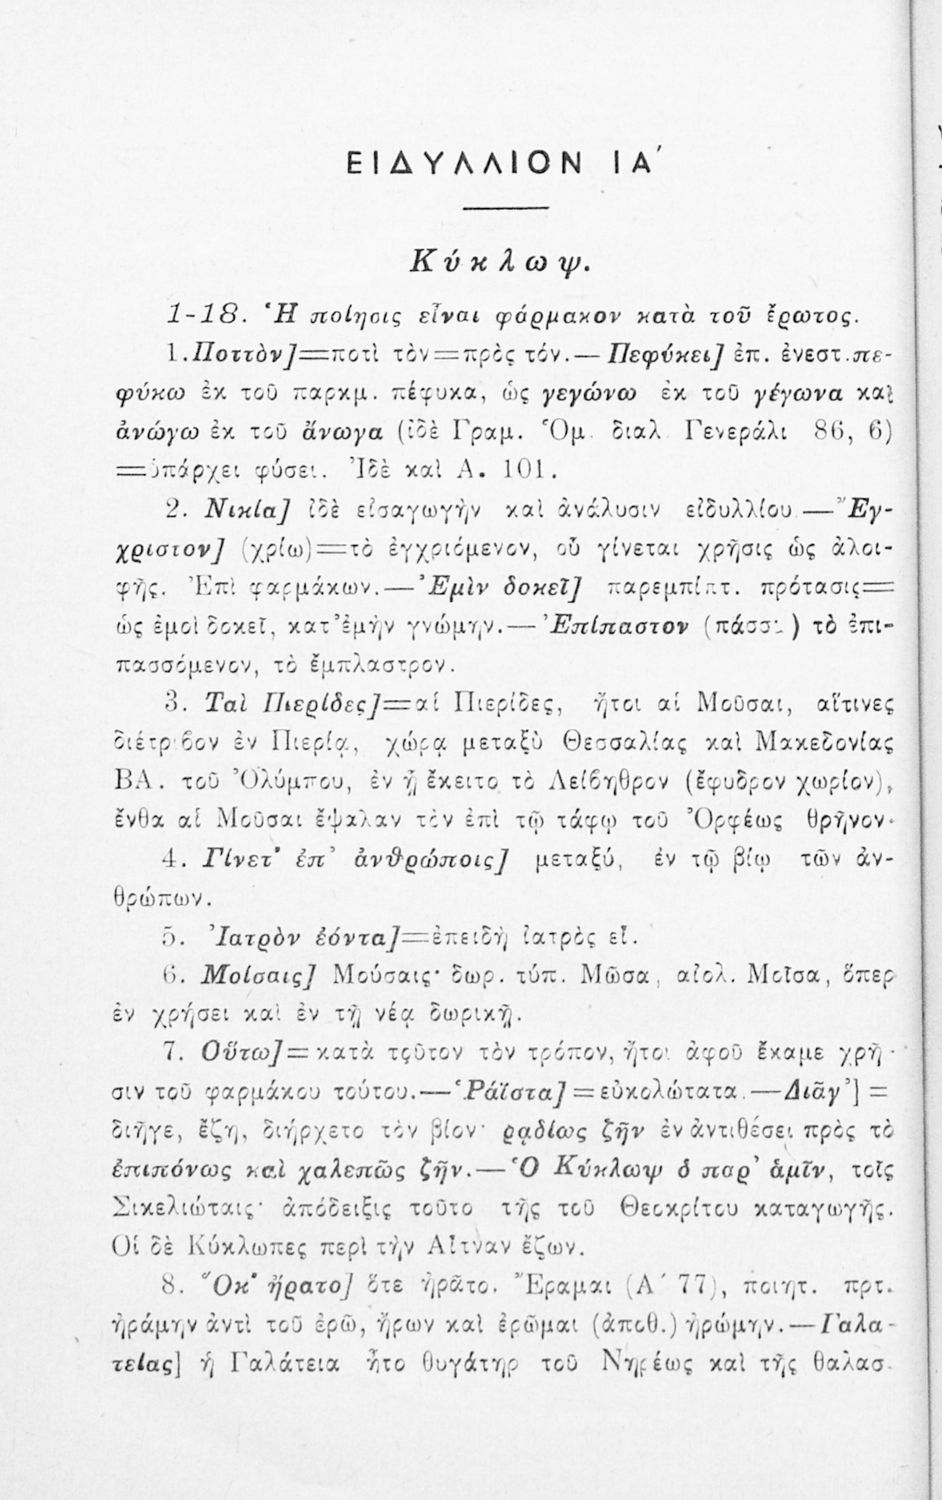 ΕΙΔΥΛΛΙΟΝ ΙΑ΄
Κύκλωψ.
1-18. Ἡ ποίησις εἶναι φάρμακον κατὰ τοῦ ἔρωτος.
1. Ποττὸν]=ποτὶ τὸν=πρὸς τόν.— Πεφύκει] ἐπ. ἐνεστ. πε-
φύκω ἐκ τοῦ παρκμ. πέφυκα, ὡς γεγώνω ἐκ τοῦ γέγωνα καὶ
ἀνώγω ἐκ τοῦ ἄνωγα (ἰδὲ Γραμ. Ὁμ. διαλ Γενεράλι 86, 6)
=ὑπάρχει φύσει. Ἰδὲ καὶ Α. 101.
2. Νικία] ἰδὲ εἰσαγωγὴν καὶ ἀνάλυσιν εἰδυλλίου.—Ἔγ-
χριστον] (χρίω)=τὸ ἐγχριόμενον, οὗ γίνεται χρῆσις ὡς ἀλοι-
φῆς. Ἐπὶ φαρμάκων.—Ἐμὶν δοκεῖ] παρεμπίπτ. πρότασις=
ὡς ἐμοὶ δοκεῖ, κατ᾿ἐμὴν γνώμην.—Ἐπίπαστον (πάσσω) τὸ ἐπι-
πασσόμενον, τὸ ἔμπλαστρον.
3. Ταὶ Πιερίδες]=αἱ Πιερίδες, ἤτοι αἱ Μοῦσαι, αἵτινες
διέτριβον ἐν Πιερίᾳ, χώρᾳ μεταξὺ Θεσσαλίας καὶ Μακεδονίας
ΒΑ. τοῦ Ὀλύμπου, ἐν ᾗ ἔκειτο τὸ Λείβηθρον (ἔφυδρον χωρίον),
ἔνθα αἱ Μοῦσαι ἔψαλαν τὸν ἐπὶ τῷ τάφῳ τοῦ Ὀρφέως θρῆνον·
4. Γίνετ᾿ ἐπ᾿ ἀνθρώποις] μεταξύ, ἐν τῷ βίῳ τῶν ἀν-
θρώπων.
5. Ἰατρὸν ἐόντα]=ἐπειδὴ ἰατρὸς εἶ.
6. Μοίσαις] Μούσαις· δωρ. τύπ. Μῶσα, αἰολ. Μοῖσα, ὅπερ
ἐν χρήσει καὶ ἐν τῇ νέᾳ δωρικῇ.
7. Οὕτω]=κατὰ τοῦτον τὸν τρόπον, ἤτοι ἀφοῦ ἔκαμε χρῆ-
σιν τοῦ φαρμάκου τούτου.—Ῥάϊστα]=εὐκολώτατα.—Διᾶγ᾿] =
διῆγε, ἔζη, διήρχετο τὸν βίον· ρᾳδίως ζῆν ἐν ἀντιθέσει πρὸς τὸ
ἐπιπόνως καὶ χαλεπῶς ζῆν.—Ὁ Κύκλωψ ὁ παρ᾿ ἁμῖν, τοῖς
Σικελιώταις· ἀπόδειξις τοῦτο τῆς τοῦ Θεοκρίτου καταγωγῆς.
Οἱ δὲ Κύκλωπες περὶ τὴν Αἴτναν ἔζων.
8. Ὅκ᾿ ἤρατο] ὅτε ἠρᾶτο. Ἔραμαι (Α΄ 77), ποιητ. πρτ.
ἠράμην ἀντὶ τοῦ ἐρῶ, ἤρων καὶ ἐρῶμαι (ἀποθ.) ἠρώμην.—Γαλα-
τείας] ἡ Γαλάτεια ἦτο θυγάτηρ τοῦ Νηρέως καὶ τῆς θαλασ-